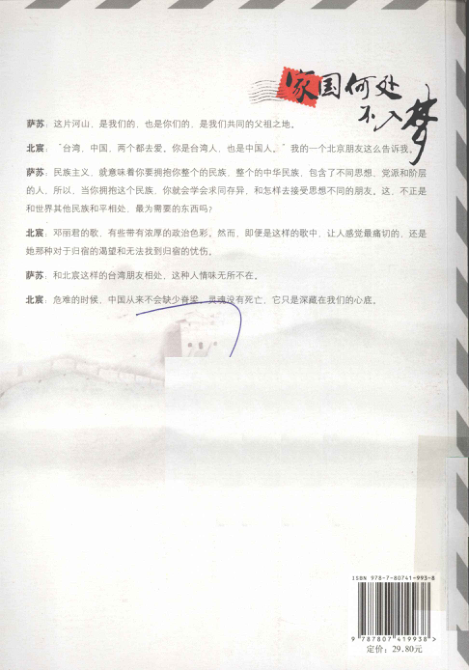 家国何处
不入梦
萨苏：这片河山，是我们的，也是你们的，是我们共同的父祖之地。
北宸：“台湾，中国，两个都去爱。你是台湾人，也是中国人。”我的一个北京朋友这么告诉我。
萨苏：民族主义，就意味着你要拥抱你整个的民族，整个的中华民族，包含了不同思想、党派和阶层
的人，所以，当你拥抱这个民族，你就会学会求同存异，和怎样去接受思想不同的朋友。这，不正是
和世界其他民族和平相处，最为需要的东西吗？
北宸：邓丽君的歌，有些带有浓厚的政治色彩。然而，即便是这样的歌中，让人感觉最痛切的，还是
她那种对于归宿的渴望和无法找到归宿的忧伤。
萨苏：和北宸这样的台湾朋友相处，这种人情味无所不在。
北宸：危难的时候，中国从来不会缺少脊梁。灵魂没有死亡，它只是深藏在我们的心底。
ISBN 978-7-80741-993-8
9 787807 419938 >
定价：29.80元